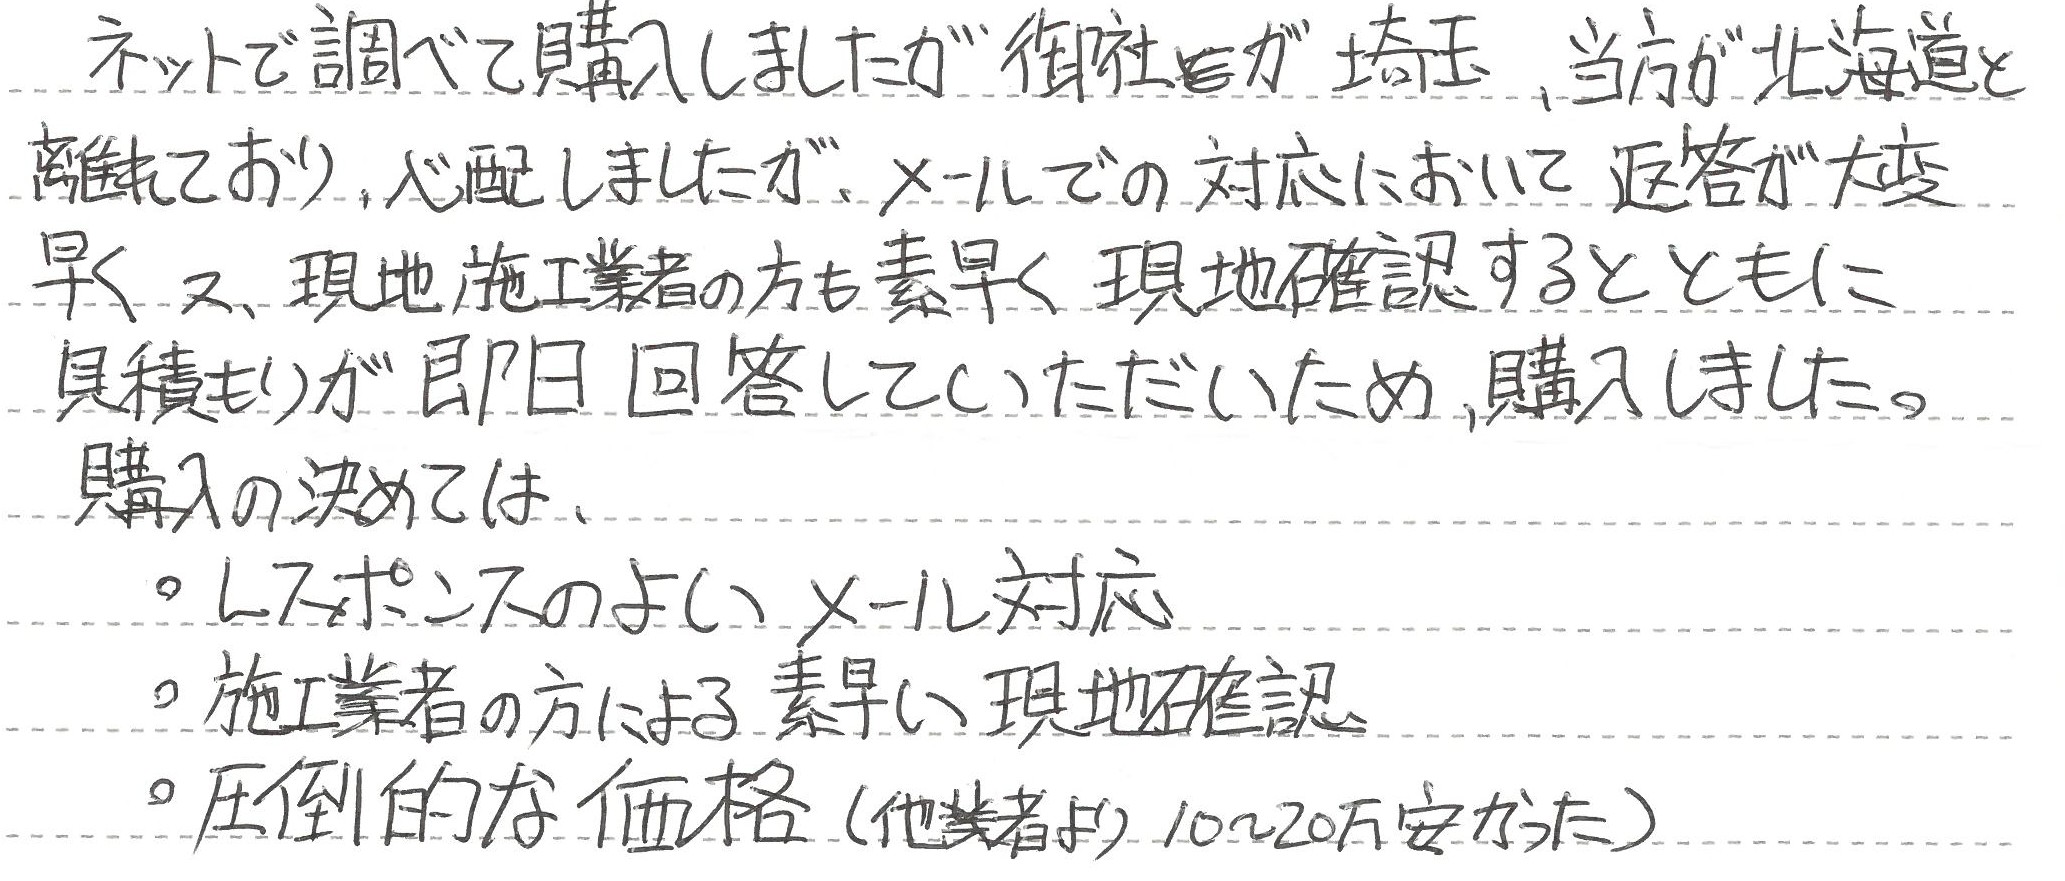 ネットで調べて購入しましたが御社が埼玉、当方が北海道と
離れており、心配しましたが、メールでの対応において返答が大変
早く又、現地施工業者の方も素早く現地確認するとともに
見積もりが即日回答していただいため、購入しました。
購入の決めては、
・レスポンスのよいメール対応
・施工業者の方による素早い現地確認
・圧倒的な価格(他業者より10~20万安かった)